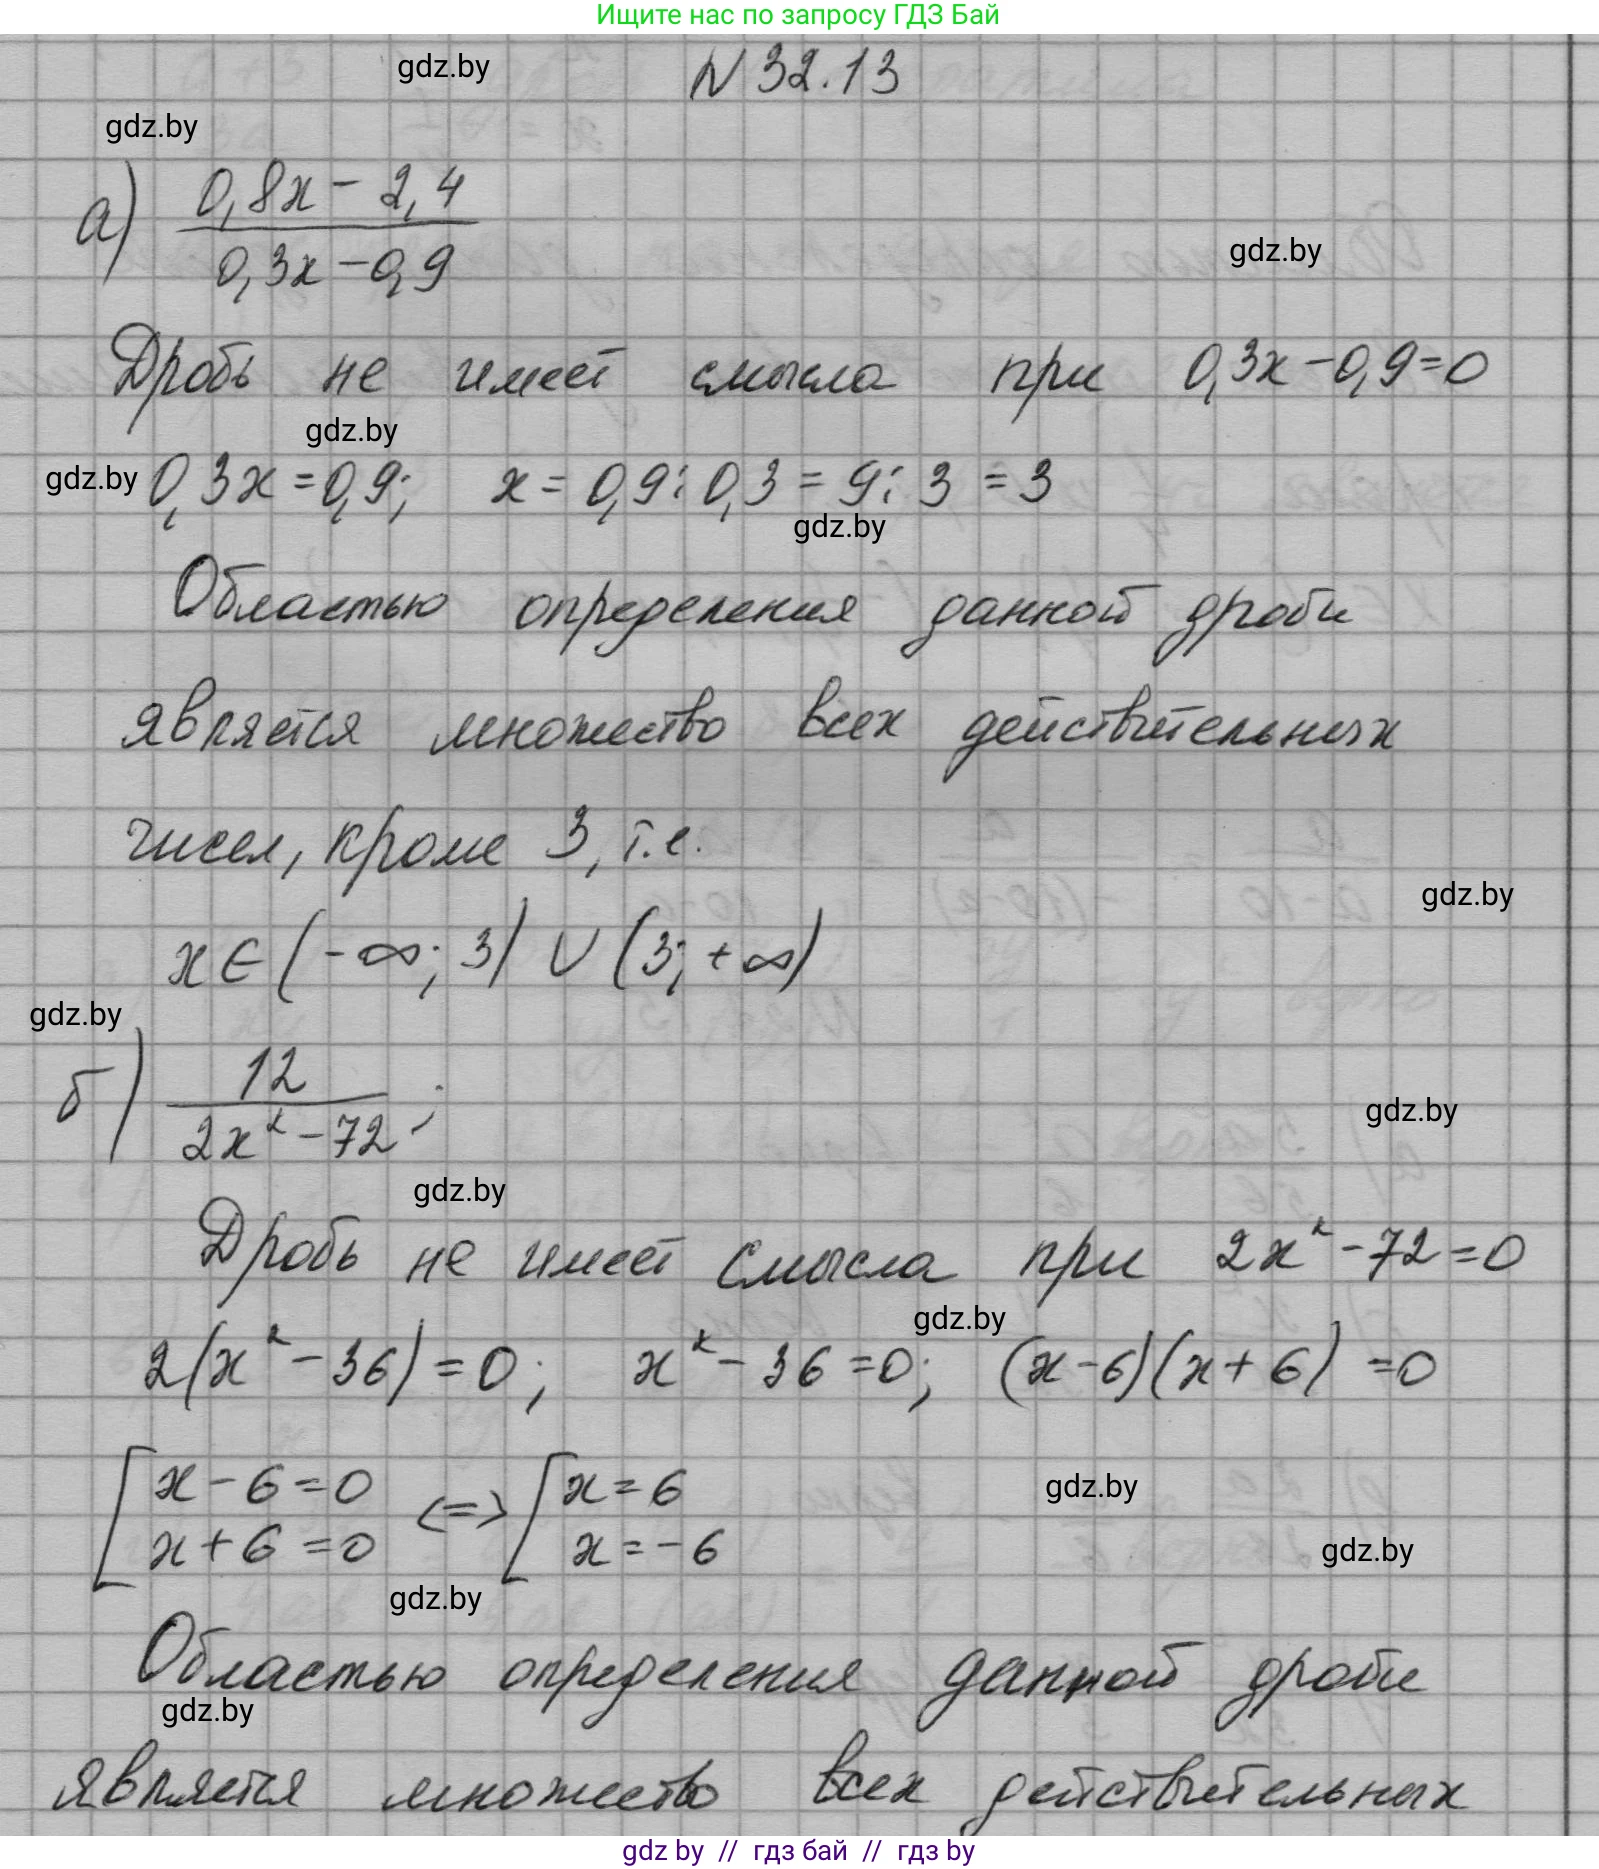 Ищите нас по запросу ГДЗ Бай
gdz.by
N 32.13
gdz.by
а) (0,8x - 2,4)/(0,3x - 0,9)
gdz.by
Дробь не имеет смысла при 0,3x - 0,9 = 0
gdz.by
gdz.by 0,3x = 0,9; x = 0,9 : 0,3 = 9 : 3 = 3
gdz.by
Областью определения данной дроби
является множество всех действительных
чисел, кроме 3, т.е.
gdz.by
x ∈ (-∞; 3) ∪ (3; +∞)
gdz.by
б) 12/(2x² - 72);
gdz.by
gdz.by
Дробь не имеет смысла при 2x² - 72 = 0
gdz.by
2(x² - 36) = 0; x² - 36 = 0; (x - 6)(x + 6) = 0
[ x - 6 = 0 <=> [ x = 6
gdz.by
x + 6 = 0 x = -6
gdz.by
gdz.by
Областью определения данной дроби
gdz.by
является множество всех действительных
gdz by // гдз бай // гдз by